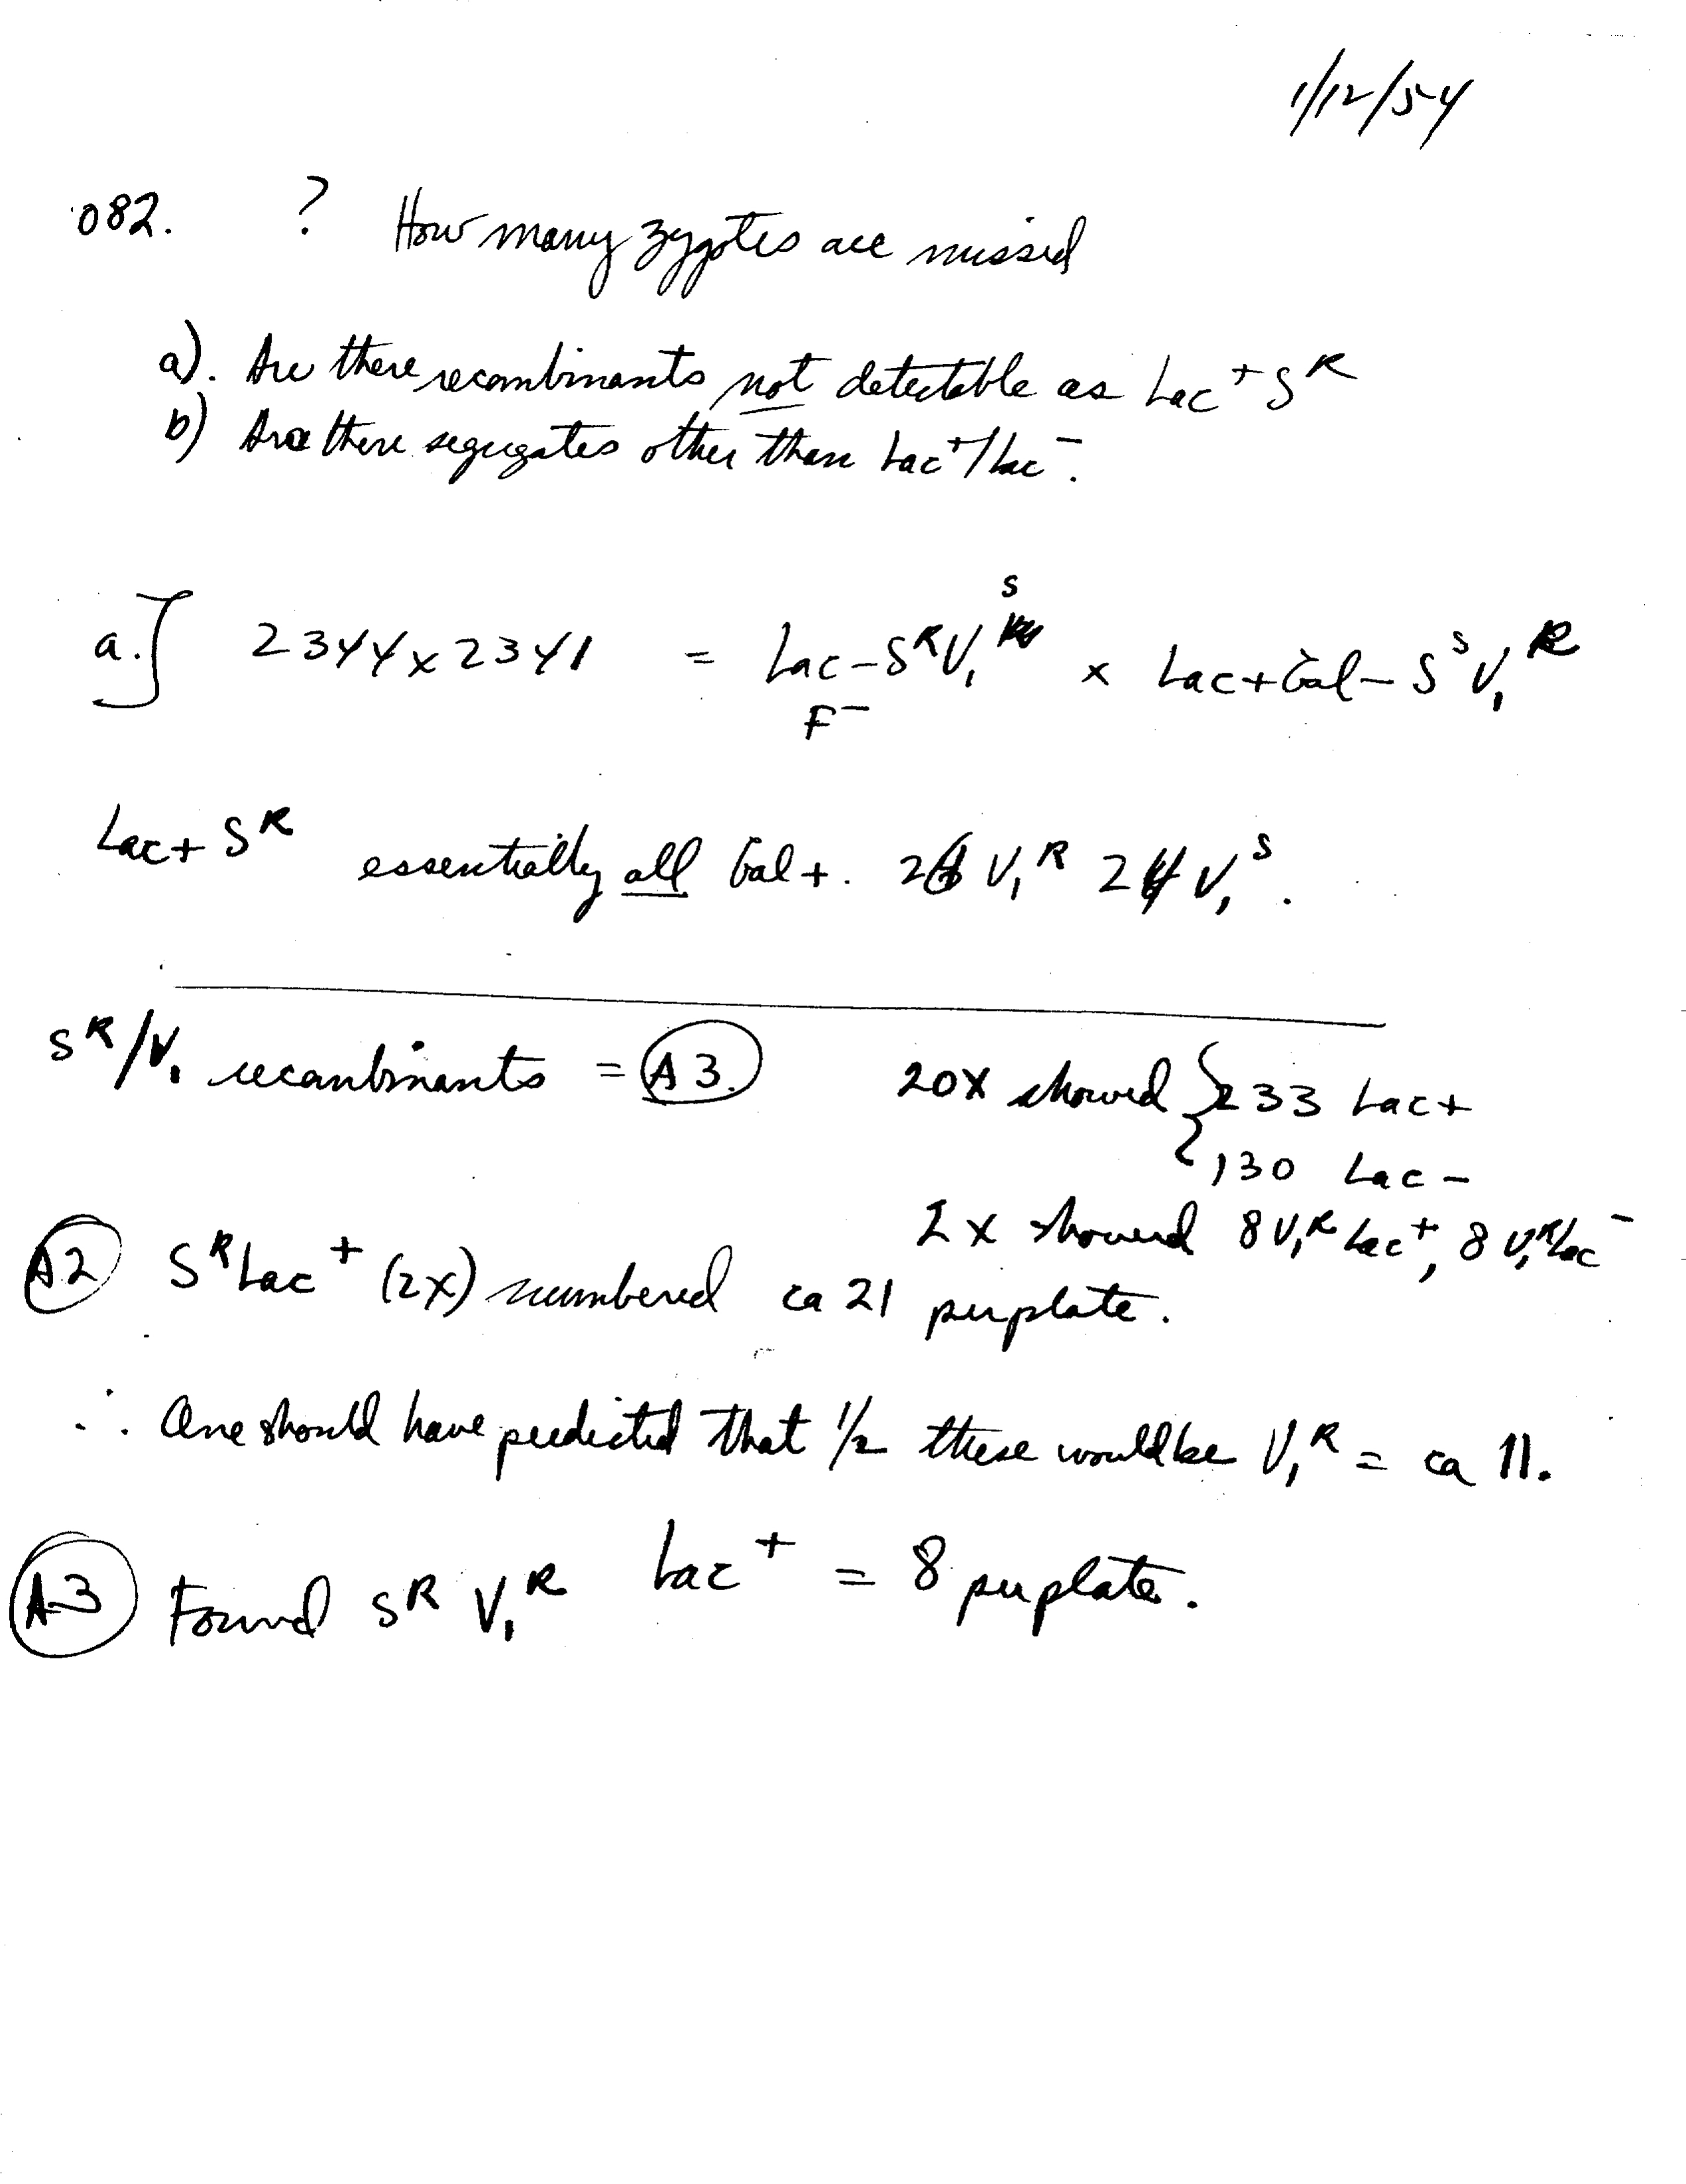 1/12/54
082. ? How many zygotes are missed
a). Are there recombinants not detectable as Lac+ S^R
b) Are there segregates other than Lac+/Lac-.
a.] 2344 x 2341 = Lac- S^R V1^S x Lac+ Gal- S^S V1^R
F-
Lac+ S^R essentially all Gal+. V1^R V1^S.
S^R/V1 recombinants = A3. 20X showed { 233 Lac+
130 Lac-
2x showed 8 V1^R Lac+, 8 V1^R Lac-
A2 S^R Lac+ (2x) numbered ca 21 per plate.
∴ One should have predicted that 1/2 these would be V1^R = ca 11.
A3 Found S^R V1^R Lac+ = 8 per plate.